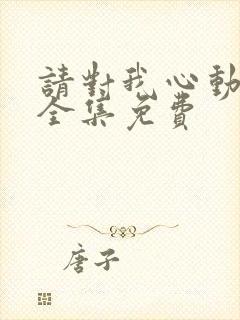 請對我心動
全集免費
唐子